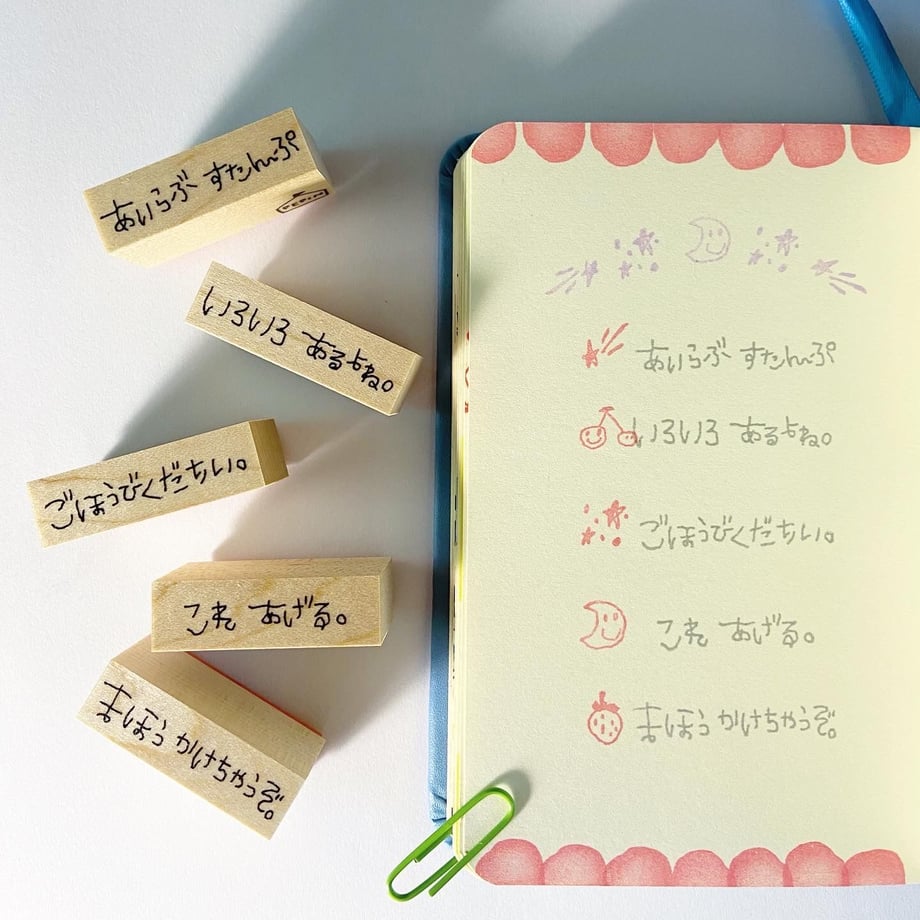 あいらぶ すたんぷ
PEPIN
いろいろ あるよね。
ごほうびくだちい。
これ あげる。
まほう かけちゃうぞ。
あいらぶ すたんぷ
いろいろ あるよね。
ごほうびくだちい。
これ あげる。
まほう かけちゃうぞ。